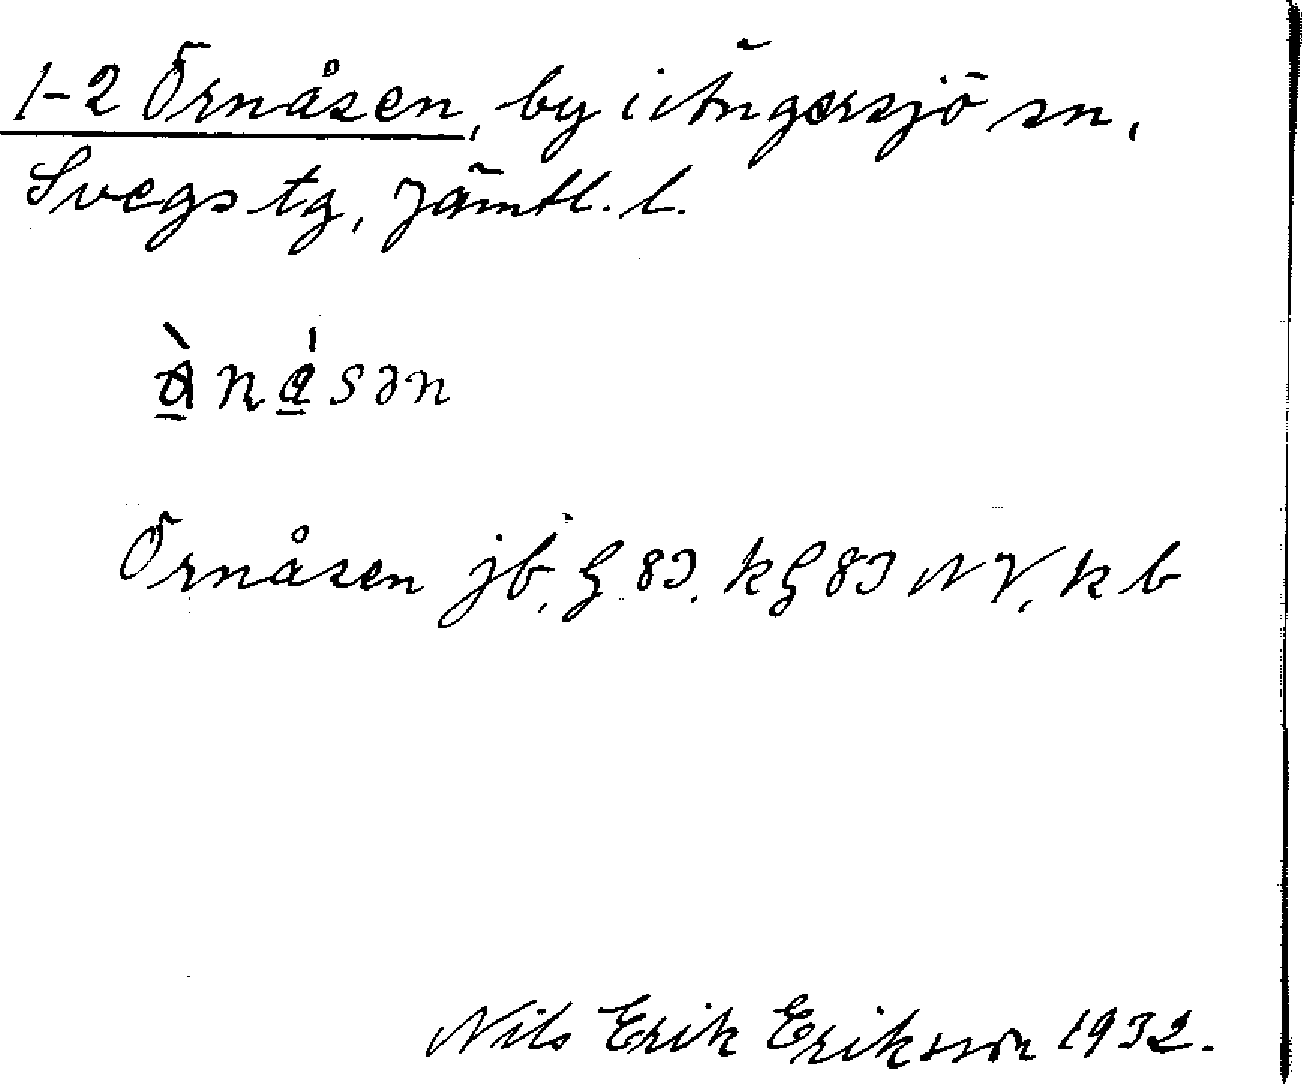 1-2 Örnåsen, by i Ängersjö sn,
Svegs tg, Jämtl. l.
Örnåsen jb, G 83. kG 83 NV, kb
Nils Erik Eriksson 1932.